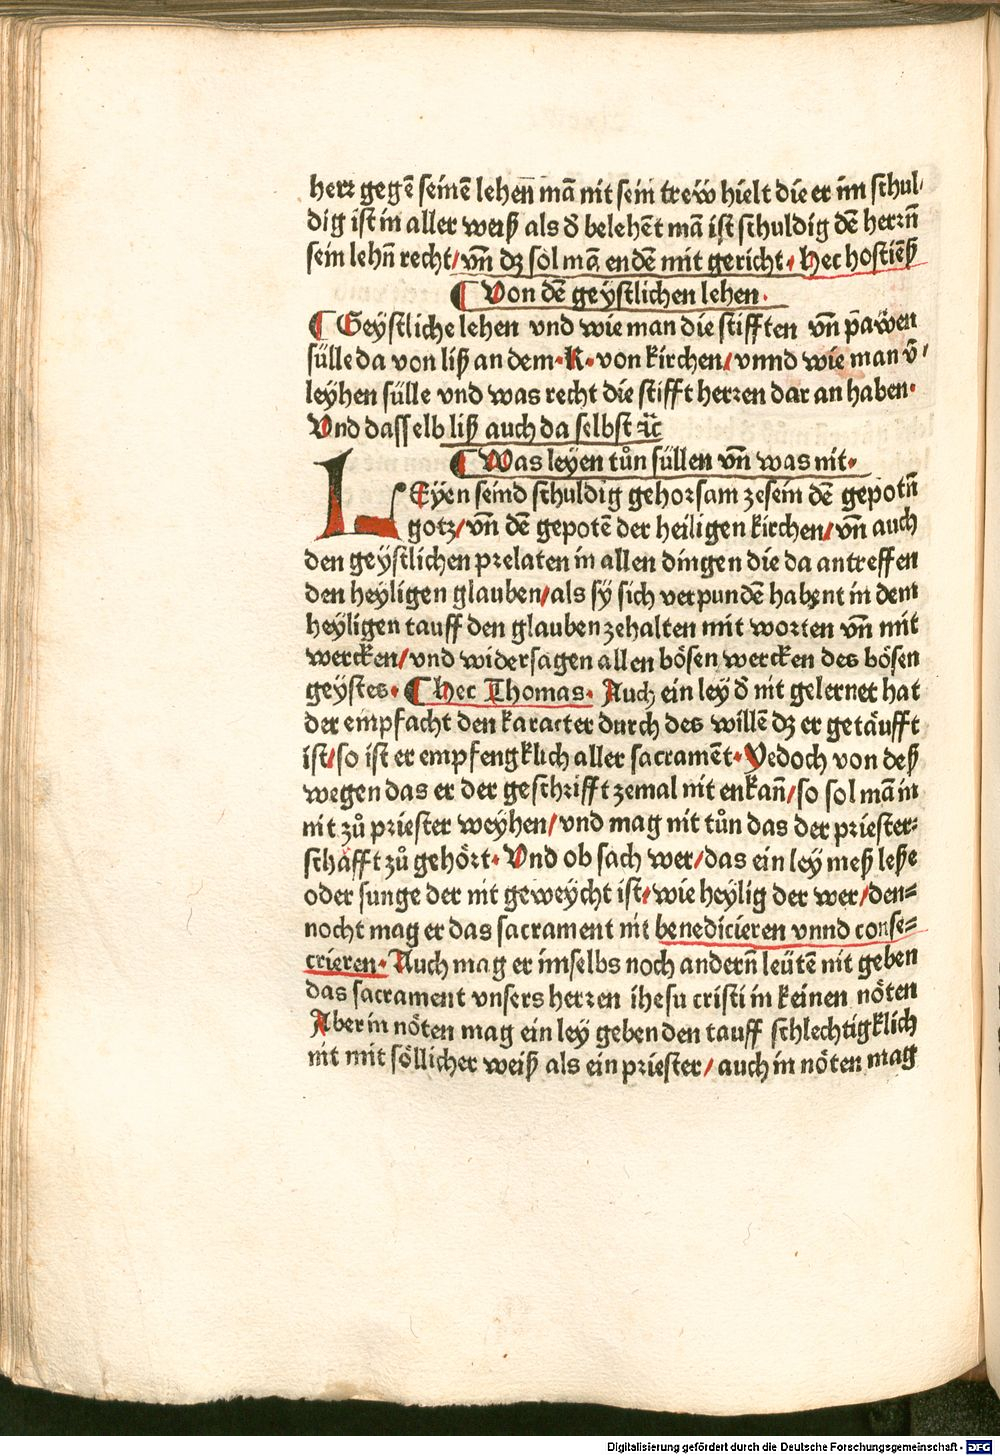 herr gegē seinē lehen̄ mā nit sein trew̎ hielt die er im schul⸗
dig ist in aller weiß als d̕ belehēt mā ist schuldig dē herrn̄
sein lehn̄ recht/vn̄ dz sol mā endē mit gericht. Hec hostiēß
¶ Von dē geystlichen lehen.
¶ Geystliche lehen vnd wie man die stifften vn̄ pawen
sülle da von liß an dem. K. von kirchen/vnnd wie man v̄⸗
leyhen sülle vnd was recht die stifft herren dar an haben.
Vnd dasselb liß auch da selbst ꝛc̄
¶ Was leyen tůn süllen vn̄ was nit.
LEyen seind schuldig gehorsam zesein dē gepotn̄
gotz/vn̄ dē gepotē der heiligen kirchen/vn̄ auch
den geystlichen prelaten in allen dingen die da antreffen
den heyligen glauben/als sy sich verpundē habent in dem
heyligen tauff den glauben zehalten mit worten vn̄ mit
wercken/vnd widersagen allen bösen wercken des bösen
geystes. ¶ Hec Thomas. Auch ein ley d̕ nit gelernet hat
der empfacht den karacter durch des willē dz er getäufft
ist/so ist er empfengklich aller sacramēt. Yedoch von deß
wegen das er der geschrifft zemal nit enkan̄/so sol mā in
nit zů priester weyhen/vnd mag nit tůn das der priester⸗
schafft zů gehört. Vnd ob sach wer/das ein ley meß leße
oder sunge der nit geweycht ist/wie heylig der wer/den⸗
nocht mag er das sacrament nit benedicieren vnnd conse⸗
crieren. Auch mag er imselbs noch andern̄ leütē nit geben
das sacrament vnsers herren ihesu cristi in keinen nöten
Aber in nöten mag ein ley geben den tauff schlechtigklich
nit mit söllicher weiß als ein priester/auch in nöten mag
Digitalisierung gefördert durch die Deutsche Forschungsgemeinschaft - DFG